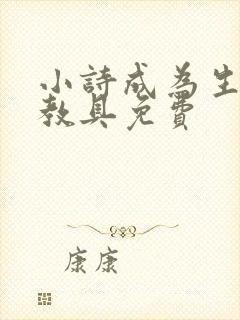 小詩成為生
教具免費
康康